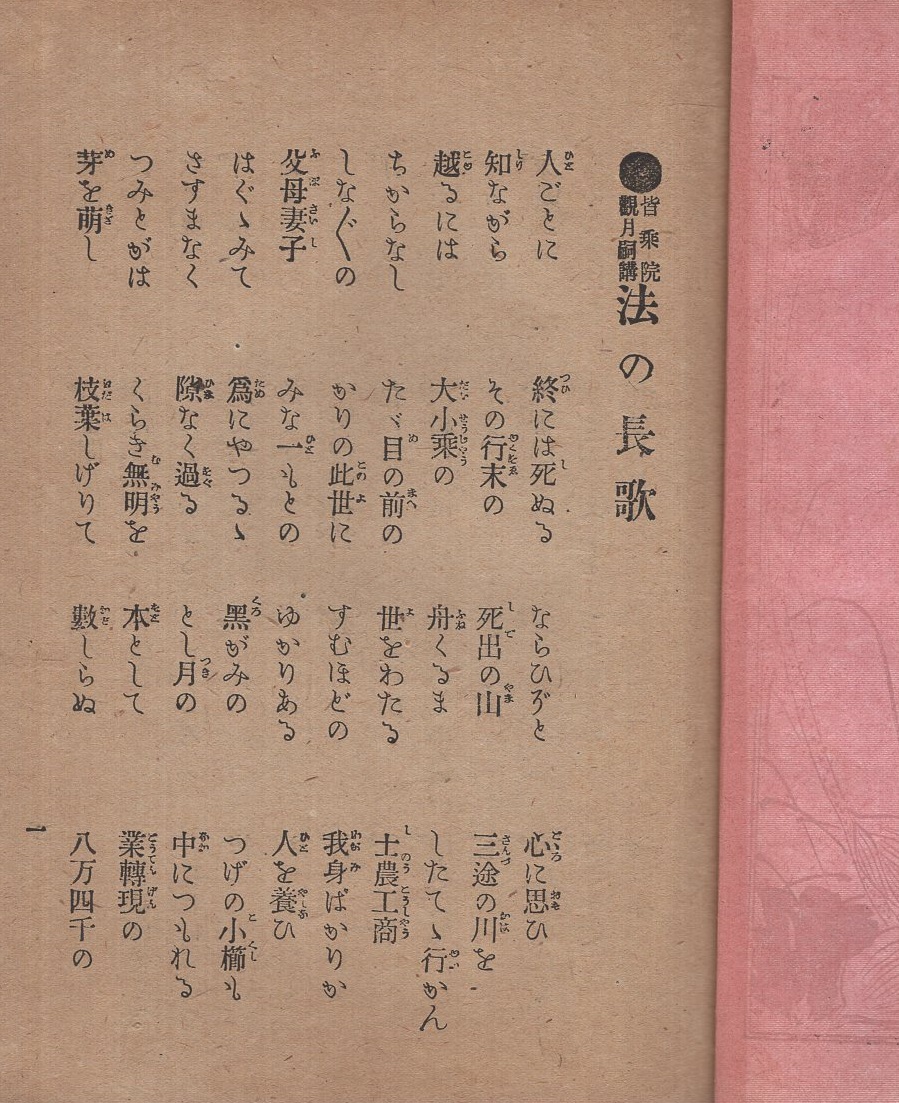 ●皆乘院觀月嗣講 法の長歌
人ごとに 終には死ぬる ならひぞと 心に思ひ
知ながら その行末の 死出の山 三途の川を
越るには 大小乘の 舟くるま したてゝ行かん
ちからなし たゞ目の前の 世をわたる 士農工商
しな〴〵の かりの此世に すむほどの 我身ばかりか
父母妻子 みな一もとの ゆかりある 人を養ひ
はぐゝみて 爲にやつるゝ 黑がみの つげの小櫛も
さすまなく 隙なく過る とし月の 中につもれる
つみとがは くらき無明を 本として 業轉現の
芽を萌し 枝葉しげりて 數しらぬ 八万四千の
一